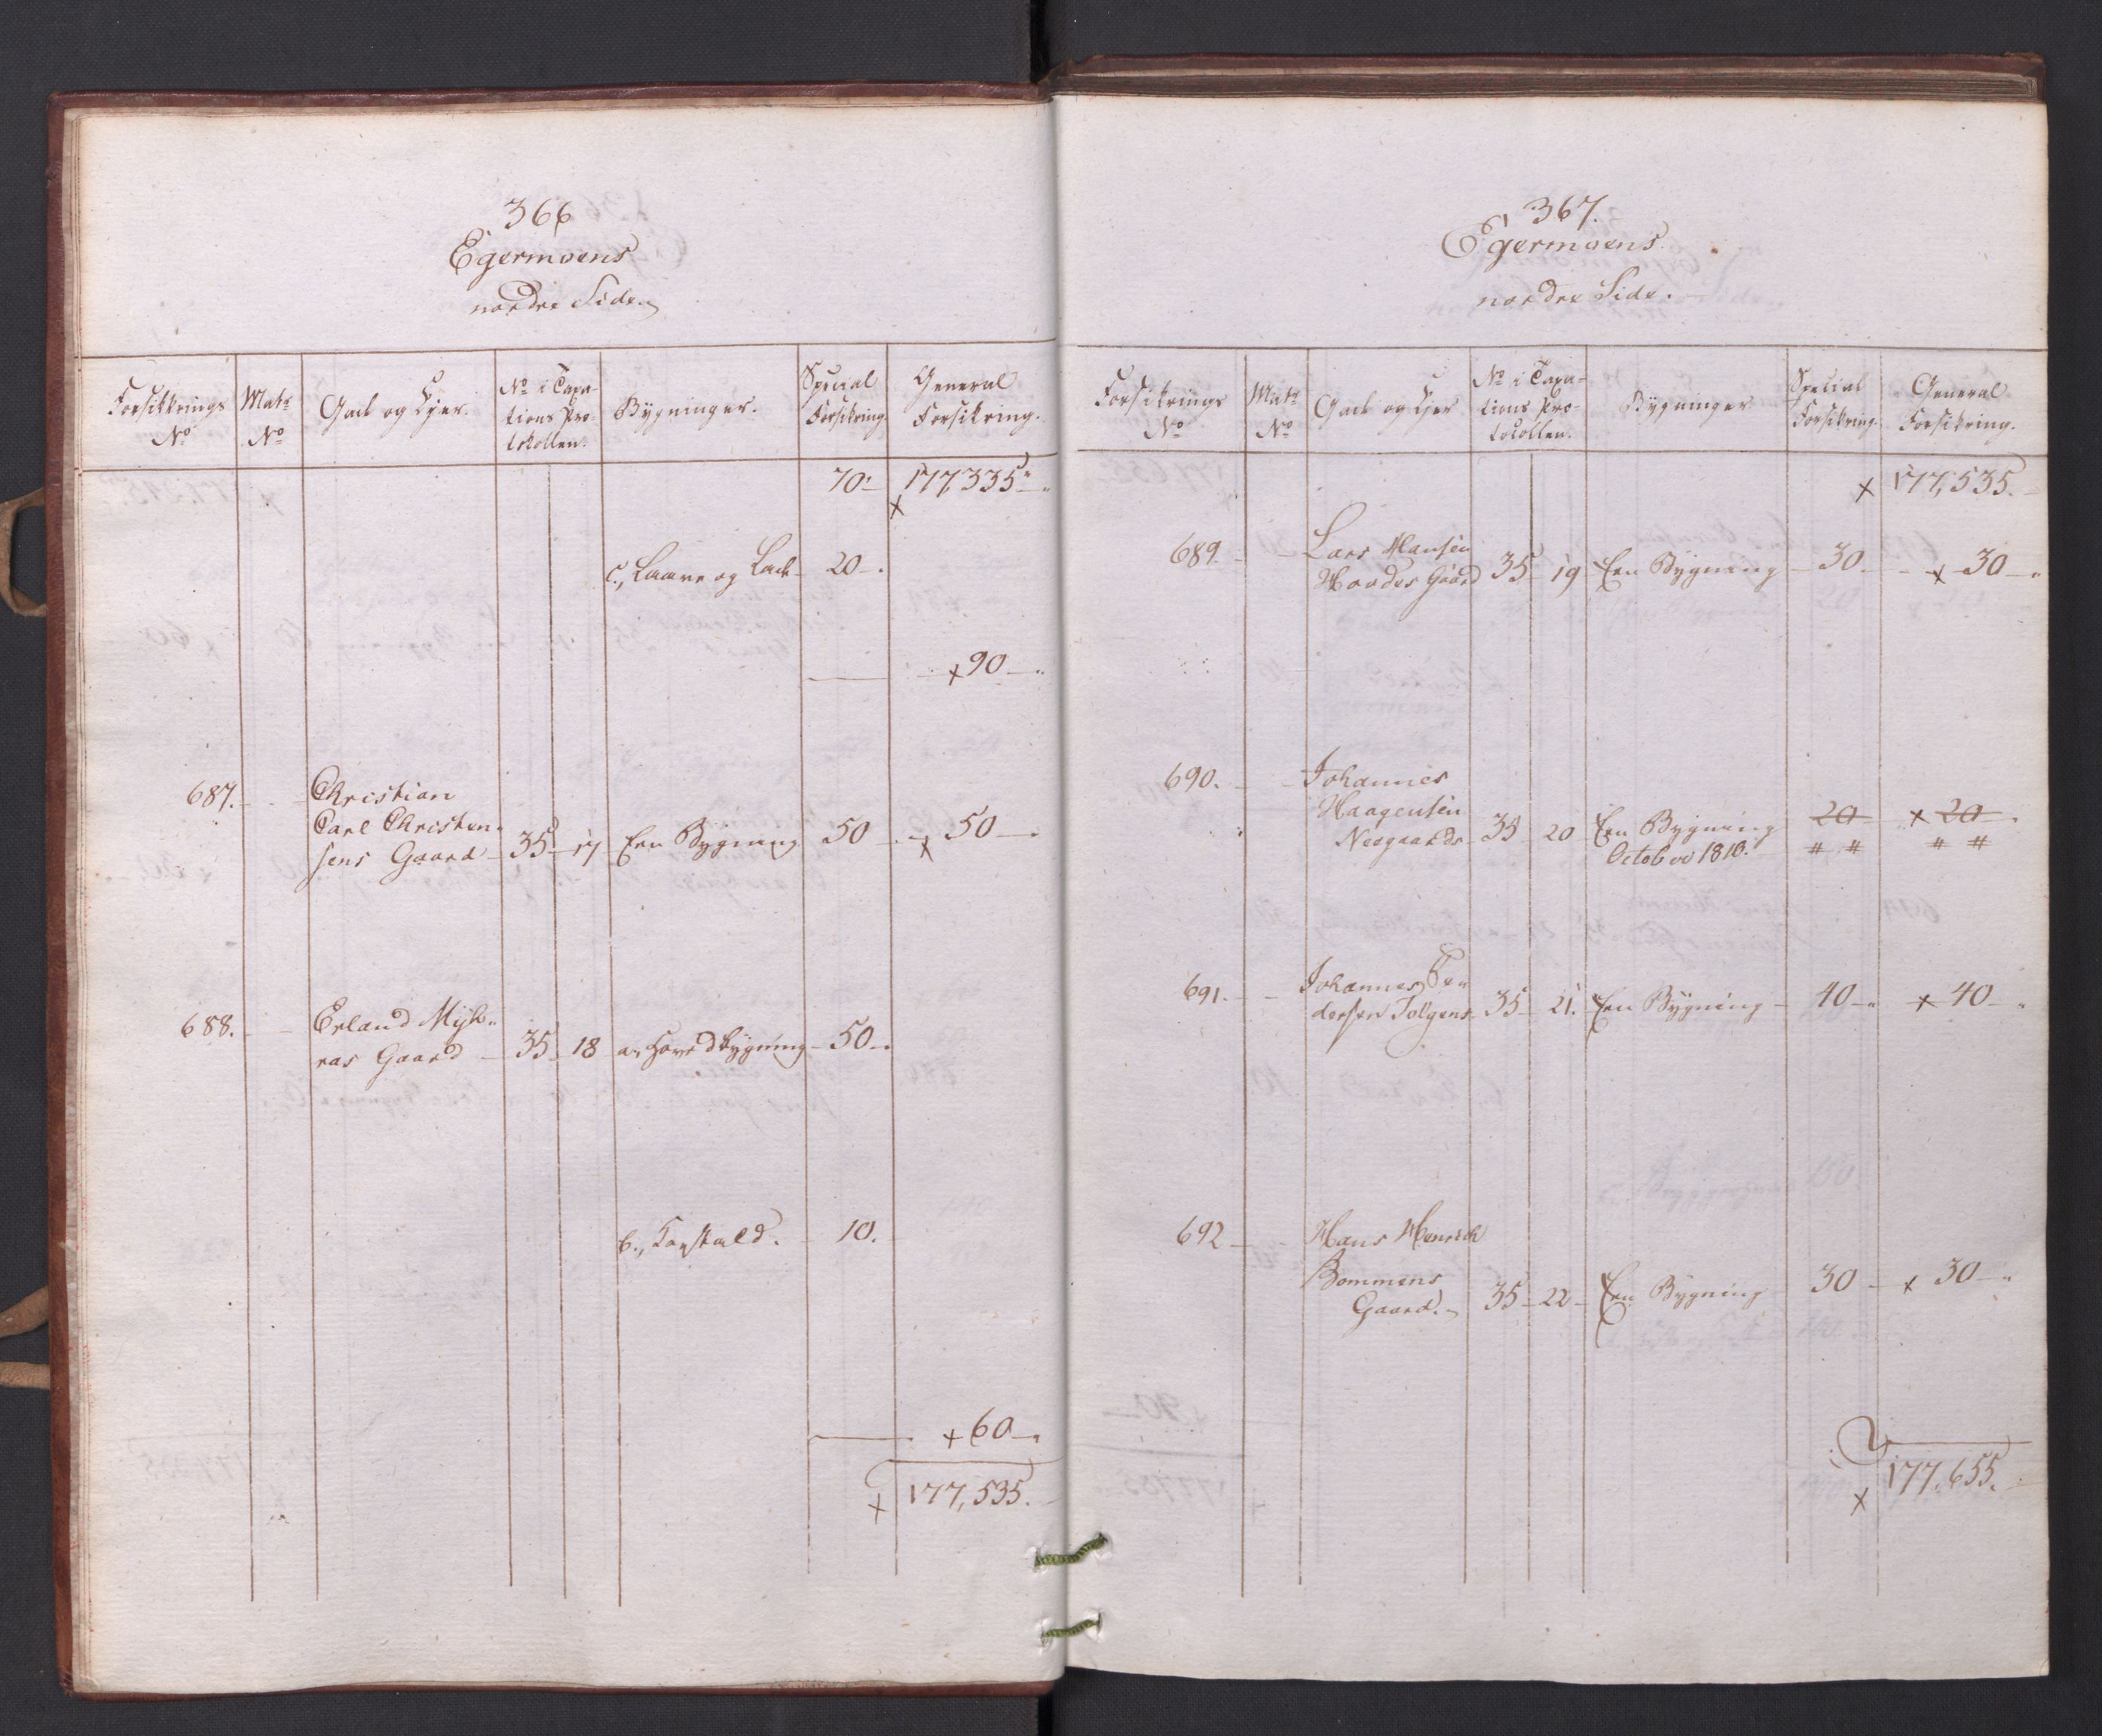 366
Egermoens
nordre Side.
Forsikkrings No
Matr No
Gade og Ejer.
No i Taxations Protokollen.
Bygninger.
Special Forsikring.
General Forsikring.
70 177,335
c., Laave og Lade 20
x 90
687. Christian
Carl Christen-
sens Gaard 35 17 Een Bygning 50 x 50
688. Erland
ras Gaard 35 18 a. Hovedbygning 50
b., Koestald. 10.
x 60
x 177,535.
367.
Egermoens
nordre Side.
Forsikrings No
Matr No
Gade og Ejer
No i Taxa-
tions Pro-
tokollen.
Bygninger
Special Forsikring.
General Forsikring.
x 177,535.
689. Lars Hansen
Gaard 35 19 Een Bygning 30. x 30
690. Johannes
Haagensen
Neegaards 35 20 Een Bygning 20 x 20
October 1810. " " " "
691. Johannes
dersen 35 21. Een Bygning 40 x 40
692 Hans Henrich
Bommens
Gaard. 35 22 Een Bygning 30 x 30
x 177,655.